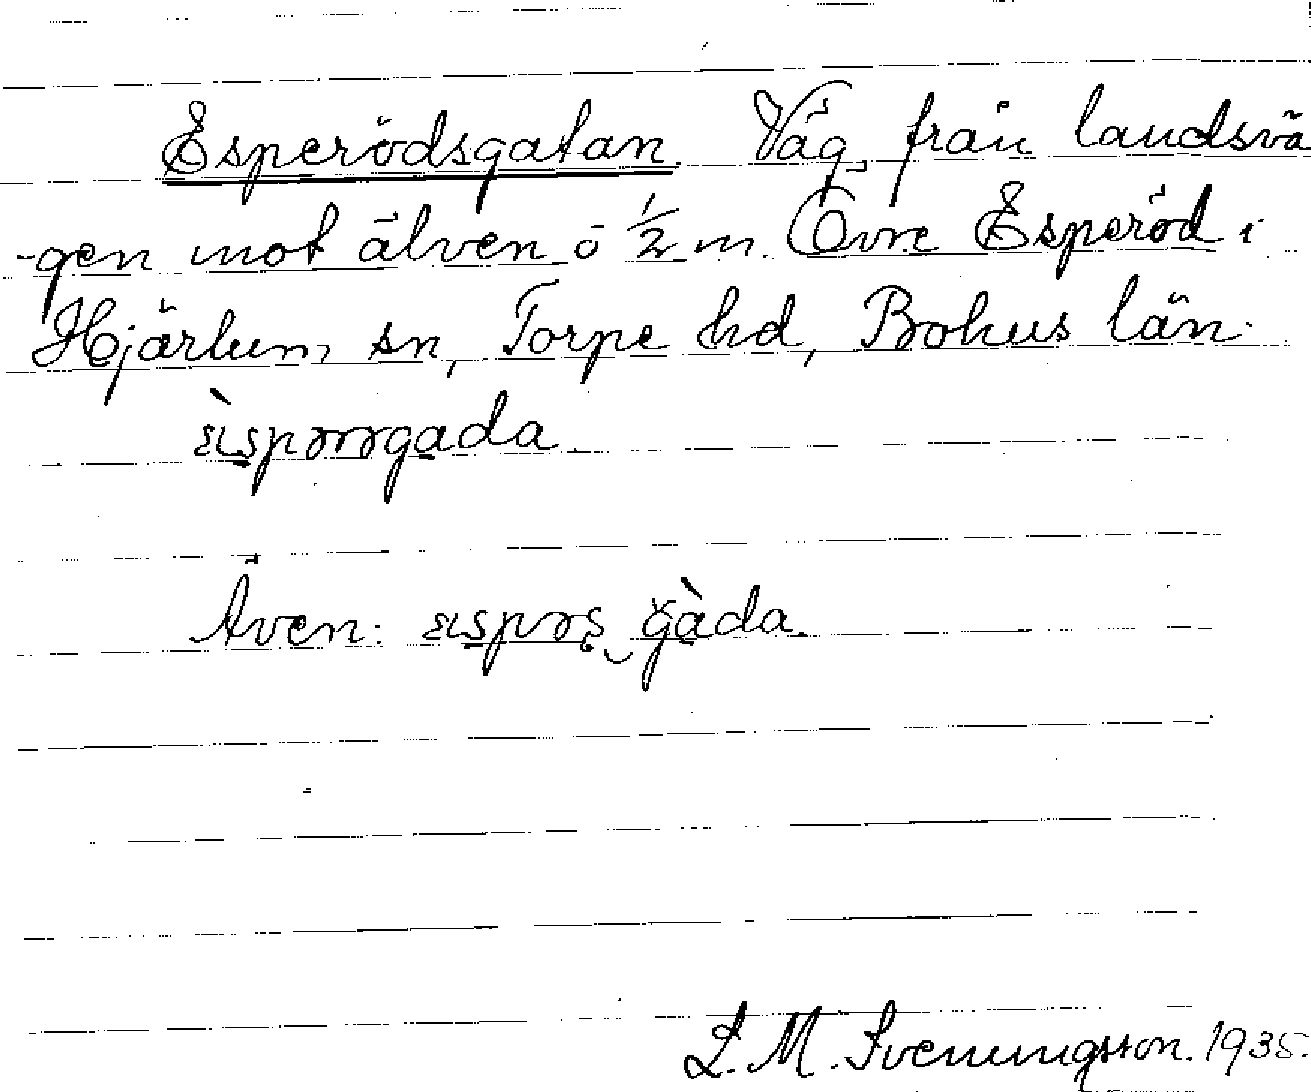 Esperödsgatan. Väg från landsvä
-gen mot älven ö ½ m. Övre Esperöd i
Hjärtum sn, Torpe hd, Bohus län.
Även:
L. M. Svenungsson. 1935.